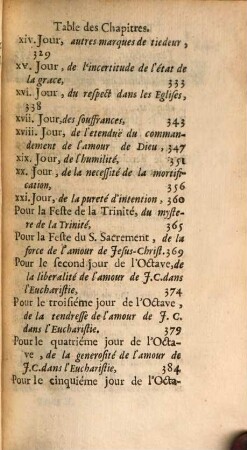 Table des Chapitres.
xiv. Jour, autres marques de tiedeur,
329
xv. Jour, de l'incertitude de l'état de
la grace, 333
xvi. Jour, du respect dans les Eglises,
338
xvii. Jour, des souffrances, 343
xviii. Jour, de l'etenduë du comman-
dement de l'amour de Dieu, 347
xix. Jour, de l'humilité, 351
xx. Jour, de la necessité de la mortifi-
cation, 356
xxi. Jour, de la pureté d'intention, 360
Pour la Feste de la Trinité, du myste-
re de la Trinité, 365
Pour la Feste du S. Sacrement, de la
force de l'amour de Jesus-Christ. 369
Pour le second jour de l'Octave, de
la liberalité de l'amour de J.C. dans
l'Eucharistie. 374
Pour le troisiéme jour de l'Octave,
de la tendresse de l'amour de J. C.
dans l'Eucharistie. 379
Pour le quatriéme jour de l'Octa-
ve, de la generosité de l'amour de
J.C. dans l'Eucharistie, 384
Pour le cinquiéme jour de l'Octa-